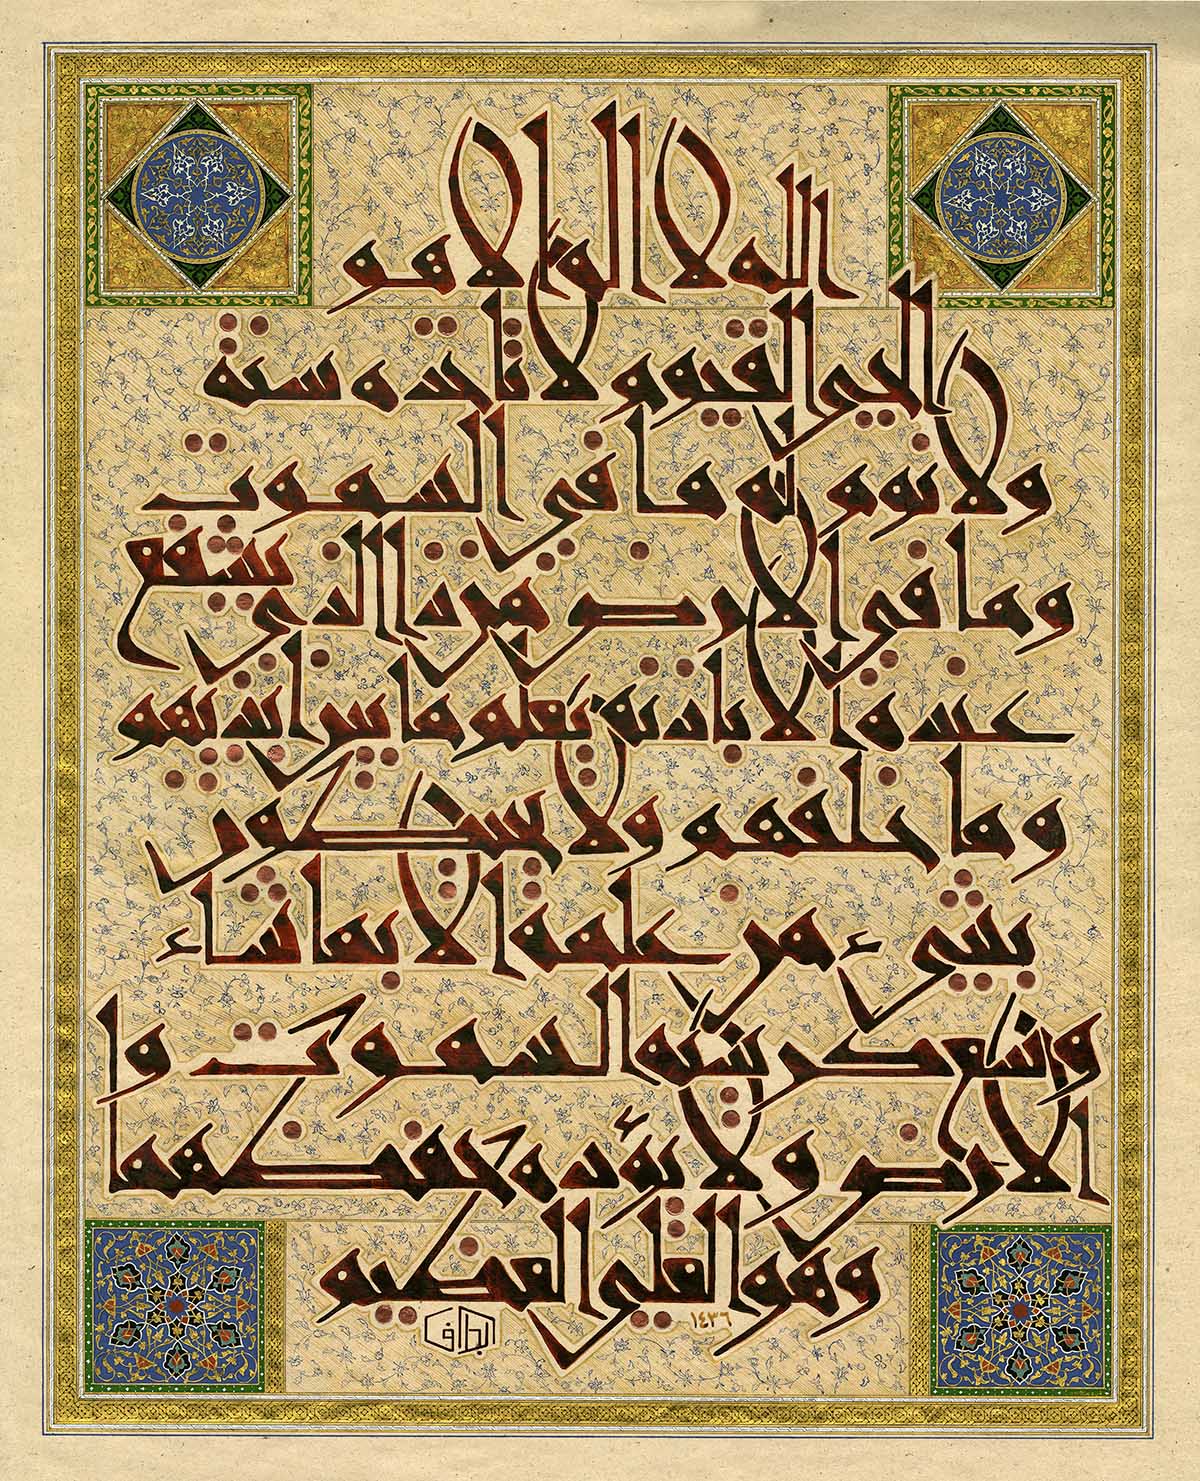 الله لا اله الا هو
الحي القيوم لا تاخذه سنة
ولا نوم له ما في السموت
وما في الارض من ذا الذي يشفع
عنده الا باذنه يعلم ما بين ايديهم
وما خلفهم ولا يحيطون
بشيء من علمه الا بما شاء
وسع كرسيه السموت وا
لارض ولا يؤده حفظهما
وهو العلي العظيم
١٤٣٦